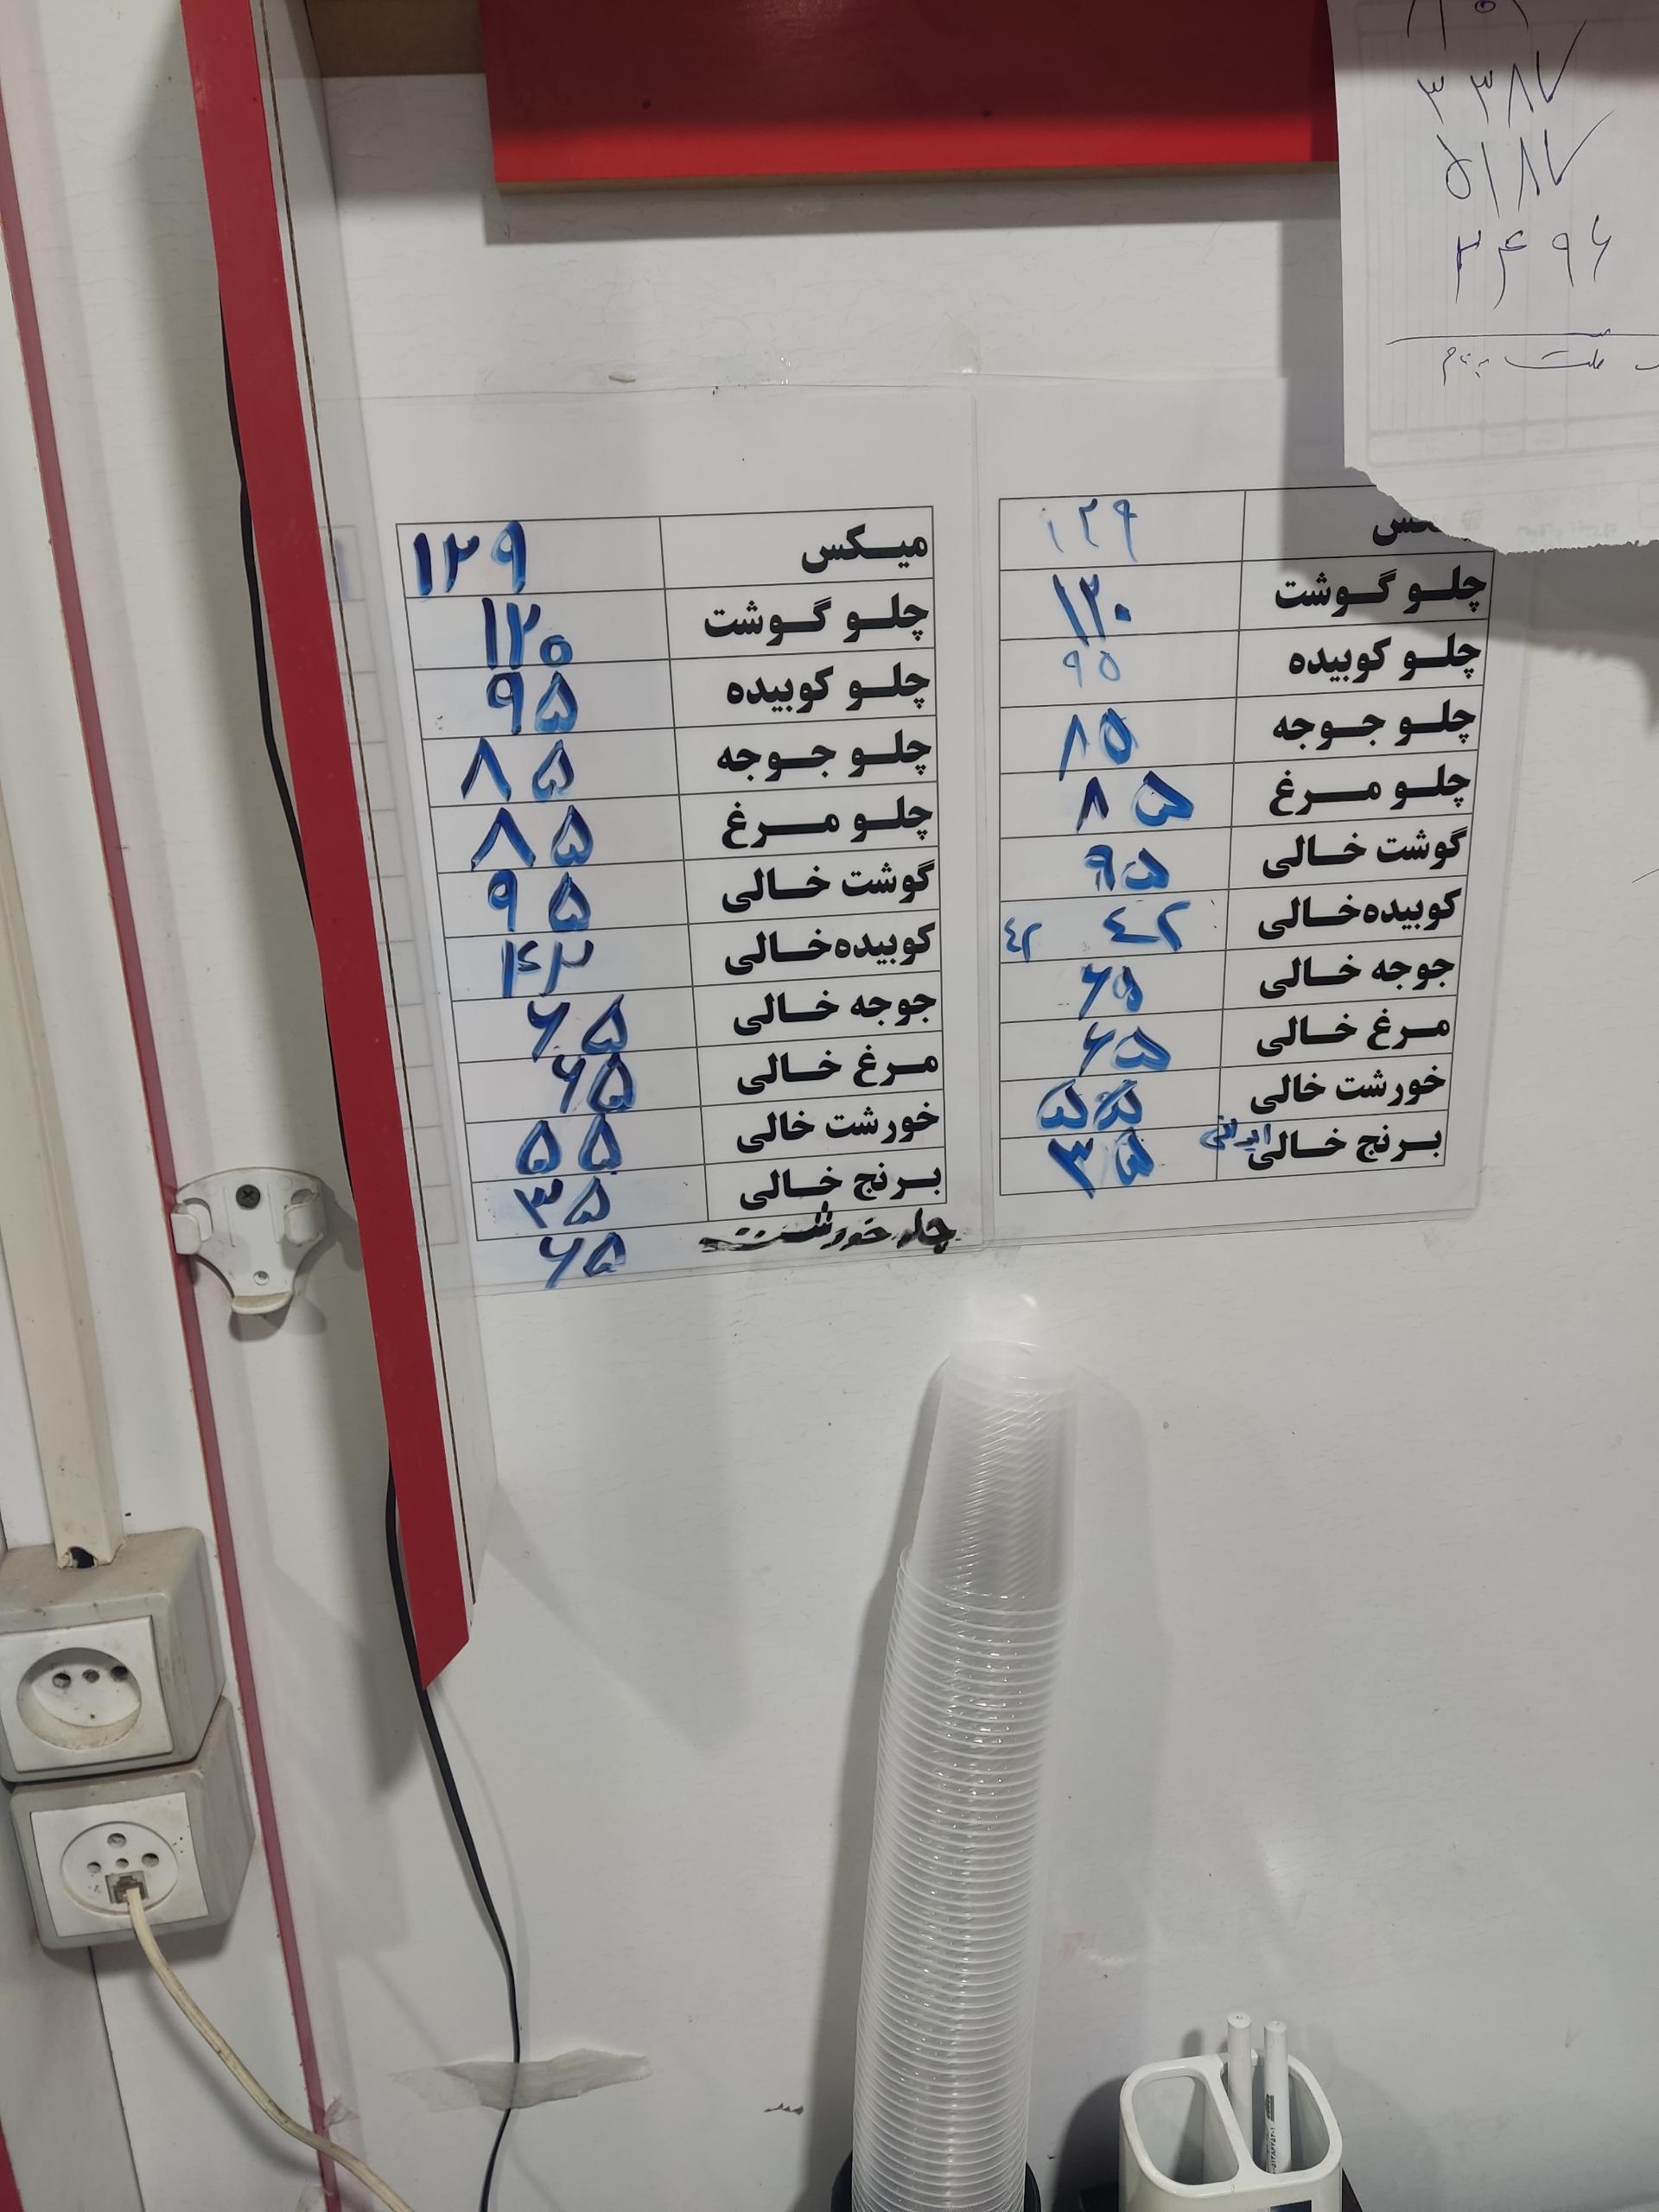 ۳۳۸۷
۵۱۸۷
۲۴۹۶
ملت به نام
۱۲۹
چلو گوشت ۱۲۰
چلو کوبیده ۹۵
چلو جوجه ۸۵
چلو مرغ ۸۵
گوشت خالی ۹۵
کوبیده خالی ۴۲ ۴۲
جوجه خالی ۶۵
مرغ خالی ۶۵
خورشت خالی ۵۵
برنج خالی ایرانی ۳۵
میکس ۱۲۹
چلو گوشت ۱۲۰
چلو کوبیده ۹۵
چلو جوجه ۸۵
چلو مرغ ۸۵
گوشت خالی ۹۵
کوبیده خالی ۴۲
جوجه خالی ۶۵
مرغ خالی ۶۵
خورشت خالی ۵۵
برنج خالی ۳۵
چلو خورشت ۶۵